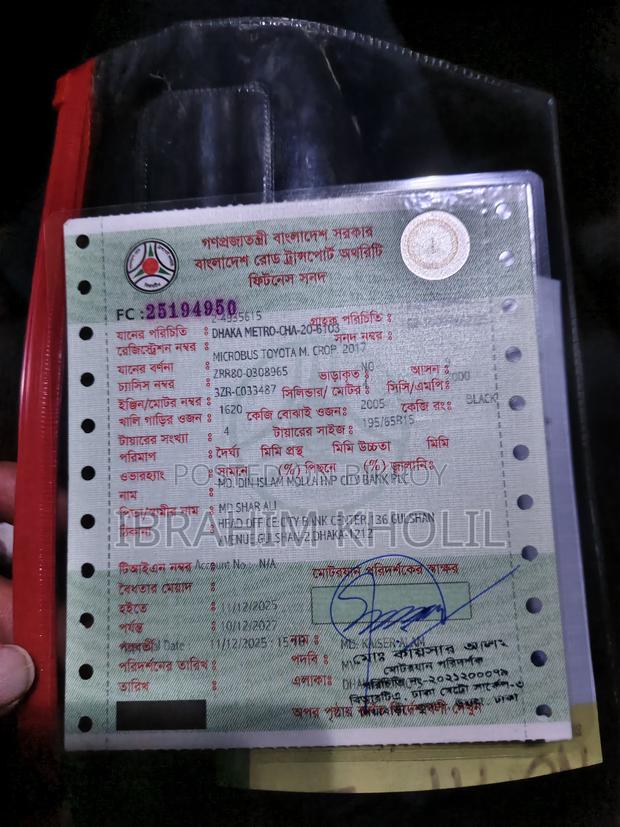 গণপ্রজাতন্ত্রী বাংলাদেশ সরকার
বাংলাদেশ রোড ট্রান্সপোর্ট অথরিটি
ফিটনেস সনদ
FC : 25194950
গ্রাহক পরিচিতি :
যানের পরিচিতি : 2-4935615
রেজিস্ট্রেশন নম্বর : DHAKA METRO-CHA-20-6103 সনদ নম্বর :
যানের বর্ণনা : MICROBUS TOYOTA M. CROP. 2017
চ্যাসিস নম্বর : ZRR80-0308965 ভাড়াকৃত : NO আসন :
ইঞ্জিন/মোটর নম্বর : 3ZR-C033487 সিলিন্ডার/ মোটর : সিসি/এমপি: 2000
খালি গাড়ির ওজন : 1620 কেজি বোঝাই ওজন: 2005 কেজি রং: BLACK
টায়ারের সংখ্যা : 4 টায়ারের সাইজ : 195/65R15
পরিমাপ : দৈর্ঘ্য মিমি প্রস্থ মিমি উচ্চতা মিমি
ওভারহ্যাং : সামনে (%) পিছনে (%) জ্বালানি:
নাম : MD. DIN ISLAM MOLLA HNP CITY BANK PLC
পিতা/স্বামীর নাম : MD SHAR ALI
ঠিকানা : HEAD OFFICE.CITY BANK CENTER,136 GULSHAN
AVENUE,GULSHAN-2,DHAKA-1212
POSTED ON BIKROY
IBRAHIM KHOLIL
টিআইএন নম্বর Account No : N/A মোটরযান পরিদর্শকের স্বাক্ষর
বৈধতার মেয়াদ :
হইতে : 11/12/2025
পর্যন্ত : 10/12/2027
পরবর্তী Date 11/12/2025 - 15 নাম : MD. KAISER ALAM
পরিদর্শনের তারিখ : পদবি :
তারিখ : এলাকা:
মোঃ কায়সার আলম
মোটরযান পরিদর্শক
অপর পৃষ্ঠায়